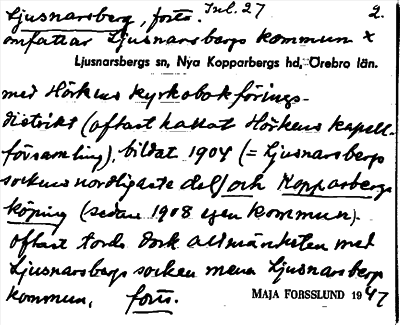 Ljusnarsberg, forts. Inl. 27 2.
omfattar Ljusnarsbergs kommun x
Ljusnarsbergs sn, Nya Kopparbergs hd, Örebro län.
med Hörkens kyrkobokförings-
distrikt (oftast kallat Hörkens kapell-
församling), bildat 1904 (= Ljusnarsbergs
sockens nordligaste del) och Kopparbergs
köping (sedan 1908 egen kommun).
Oftast torde dock allmänheten med
Ljusnarsbergs socken mena Ljusnarsbergs
kommun. forts. MAJA FORSSLUND 1947